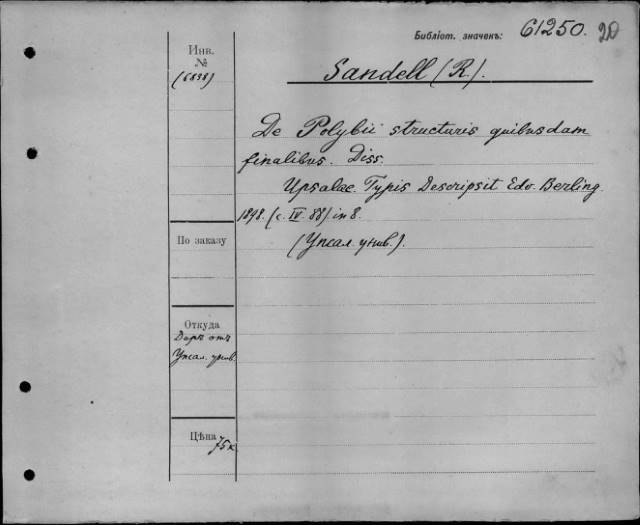 Библіот. значекъ: 61250. 20
Инв.
№
(6898)
Sandell (R.).
De Polybii structuris quibusdam
finalibus. Diss.
Upsalae. Typis Descripsit Edv. Berling.
1898. (c. IV. 88) in 8.
(Упсал. унив.).
По заказу
Откуда
Даръ отъ
Упсал. унив.
Цѣна
75 к.